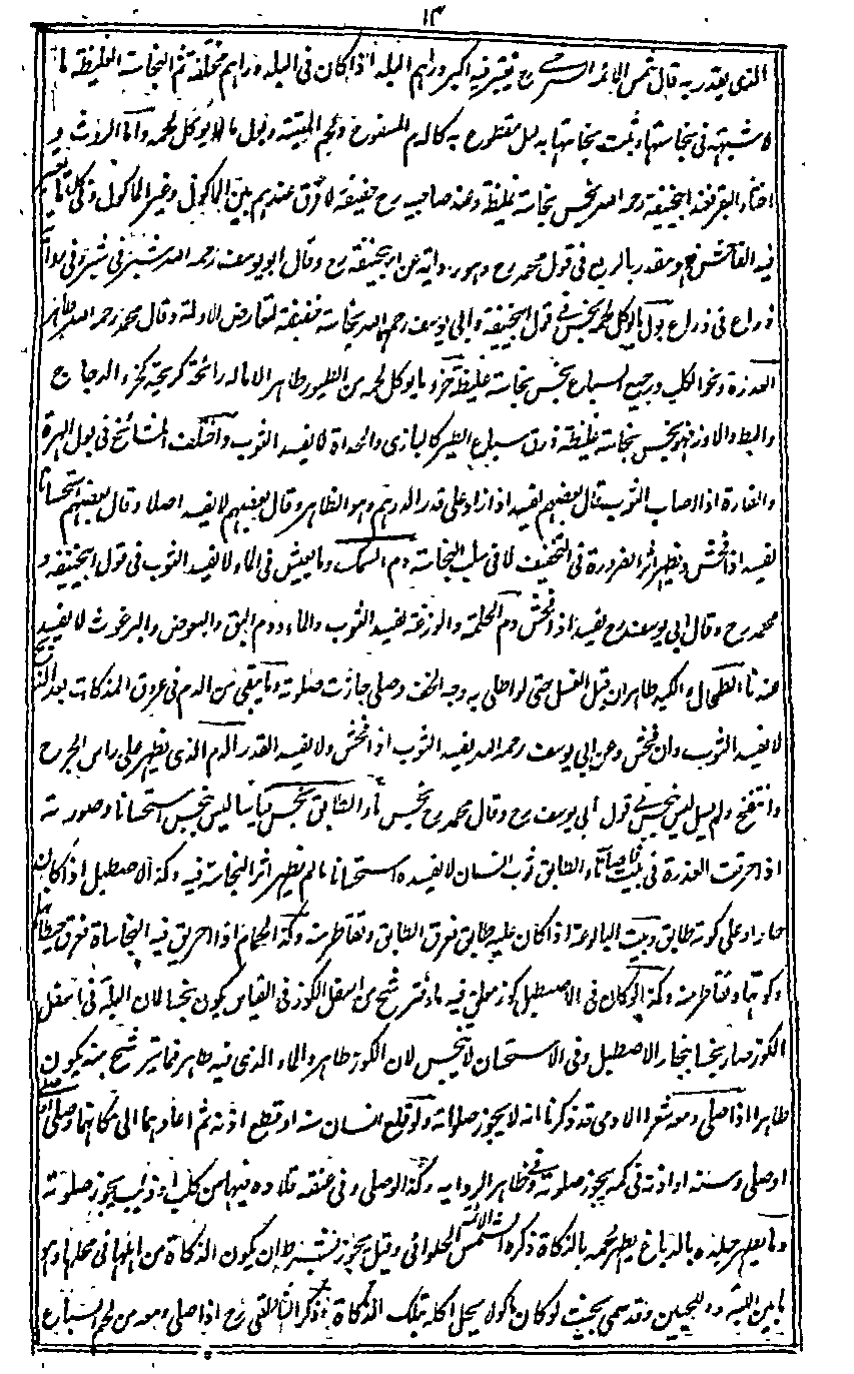 ١٣
الذى يقدر به قال شمس الائمة السرخسى رح يعتبر فيه اكبر دراهم البلد اذا كان فى البلد دراهم مختلفة ثم النجاسة الغليظة ما
لا شبهة فى نجاستها وثبت نجاستها بدليل مقطوع به كالدم المسفوح ولحم الميتة وبول ما لا يوكل لحمه واما الروث و
اخثاء البقر فعند ابيحنيفة رحمه الله نجس نجاسة غليظة وعند صاحبيه رح خفيفة لا فرق عندهم بين الماكول وغير الماكول وفى كل ما يعتبر
فيه الفاحش فهو مقدر بالربع فى قول محمد رح وهو رواية عن ابيحنيفة رح وقال ابو يوسف رحمه الله شبر فى شبر وفى رواية
ذراع فى ذراع بول ما يوكل لحمه نجس فى قول ابيحنيفة وابى يوسف رحمهما الله نجاسة خفيفة لتعارض الادلة وقال محمد رحمه الله طاهر
العذرة ونحو الكلب ورجيع السباع نجس نجاسة غليظة خرء ما يوكل لحمه من الطيور طاهر الا ماله رائحة كريهة كخرء الدجاج
والبط والاوز فهو نجس نجاسة غليظة ذرق سباع الطير كالبازى والحداة لا يفسد الثوب واختلف المشائخ فى بول الهرة
والفارة اذا اصاب الثوب قال بعضهم يفسد اذا زاد على قدر الدرهم وهو الظاهر وقال بعضهم لا يفسد اصلا وقال بعضهم استحسانا
يفسد اذا فحش ويظهر اثر الضرورة فى التخفيف لا فى سلب النجاسة دم السمك وما يعيش فى الماء لا يفسد الثوب فى قول ابيحنيفة و
محمد رح وقال ابى يوسف رح يفسد اذا فحش دم الحلمة والوزغة يفسد الثوب والماء ودم البق والبعوض والبرغوث لا يفسد
عندنا الطحال والكبد طاهران قبل الغسل حتى لو اطلى به وجه الخف وصلى جازت صلوته وما يبقى من الدم فى عروق المذكات بعد الذبح
لا يفسد الثوب وان فحش وعن ابى يوسف رحمه الله يفسد الثوب اذا فحش ولا يفسد القدر الدم الذى يظهر على راس الجرح
وانتفخ ولم يسل ليس بنجس فى قول ابى يوسف رح وقال محمد رح نجس ماء الطابق نجس قياسا ليس بنجس استحسانا وصورته
اذا احرقت العذرة فى بيت فاصاب ماء الطابق ثوب انسان لا يفسده استحسانا مالم يظهر اثر النجاسة فيه وكذا الاصطبل اذا كان
حارا وعلى كوته طابق وبيت البالوعة اذا كان عليه طابق فعرق الطابق وتقاطر منه وكذا الحمام اذا اهريق فيه النجاسة فعرق حيطانها
وكوتها وتقاطر منه وكذا لو كان فى الاصطبل كوز معلق فيه ماء فترشح من اسفل الكوز فى القياس يكون نجسا لان البلة فى اسفل
الكوز صار نجسا ببخار الاصطبل وفى الاستحسان لا ينجس لان الكوز طاهر والماء الذى فيه طاهر فما ترشح منه يكون
طاهرا اذا صلى ومعه شعر الادمى قد ذكرنا انه لا يجوز صلواته ولو قلع انسان سنه او قطع اذنه ثم اعادهما الى مكانهما وصلى
او صلى وسنه او اذنه فى كمه يجوز صلوته فى ظاهر الرواية وكذا لو صلى وفى عنقه قلادة فيها سن كلب او ذئب يجوز صلوته
وما يطهر جلده بالدباغ يطهر لحمه بالذكاة ذكره الشمس الائمة الحلوانى وقيل يجوز بشرط ان يكون الذكاة من اهلها فى محلها وهو
ما بين اللبة واللحيين وقد سمى بحيث لو كان ماكولا يحل اكله بتلك الذكاة ذكر الناطفى رح اذا صلى ومعه من لحم السباع